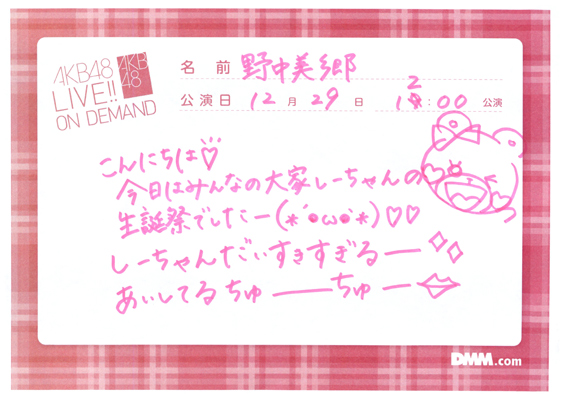 AKB48
LIVE!!
ON DEMAND
AKB
48
名 前 野中美郷
公演日 12 月 29 日 12:00 公演
こんにちは♡
今日はみんなの大家しーちゃんの
生誕祭でしたー(*´●ω●`*)♡♡
しーちゃんだいすきすぎるー
あいしてるちゅーちゅー
DMM.com